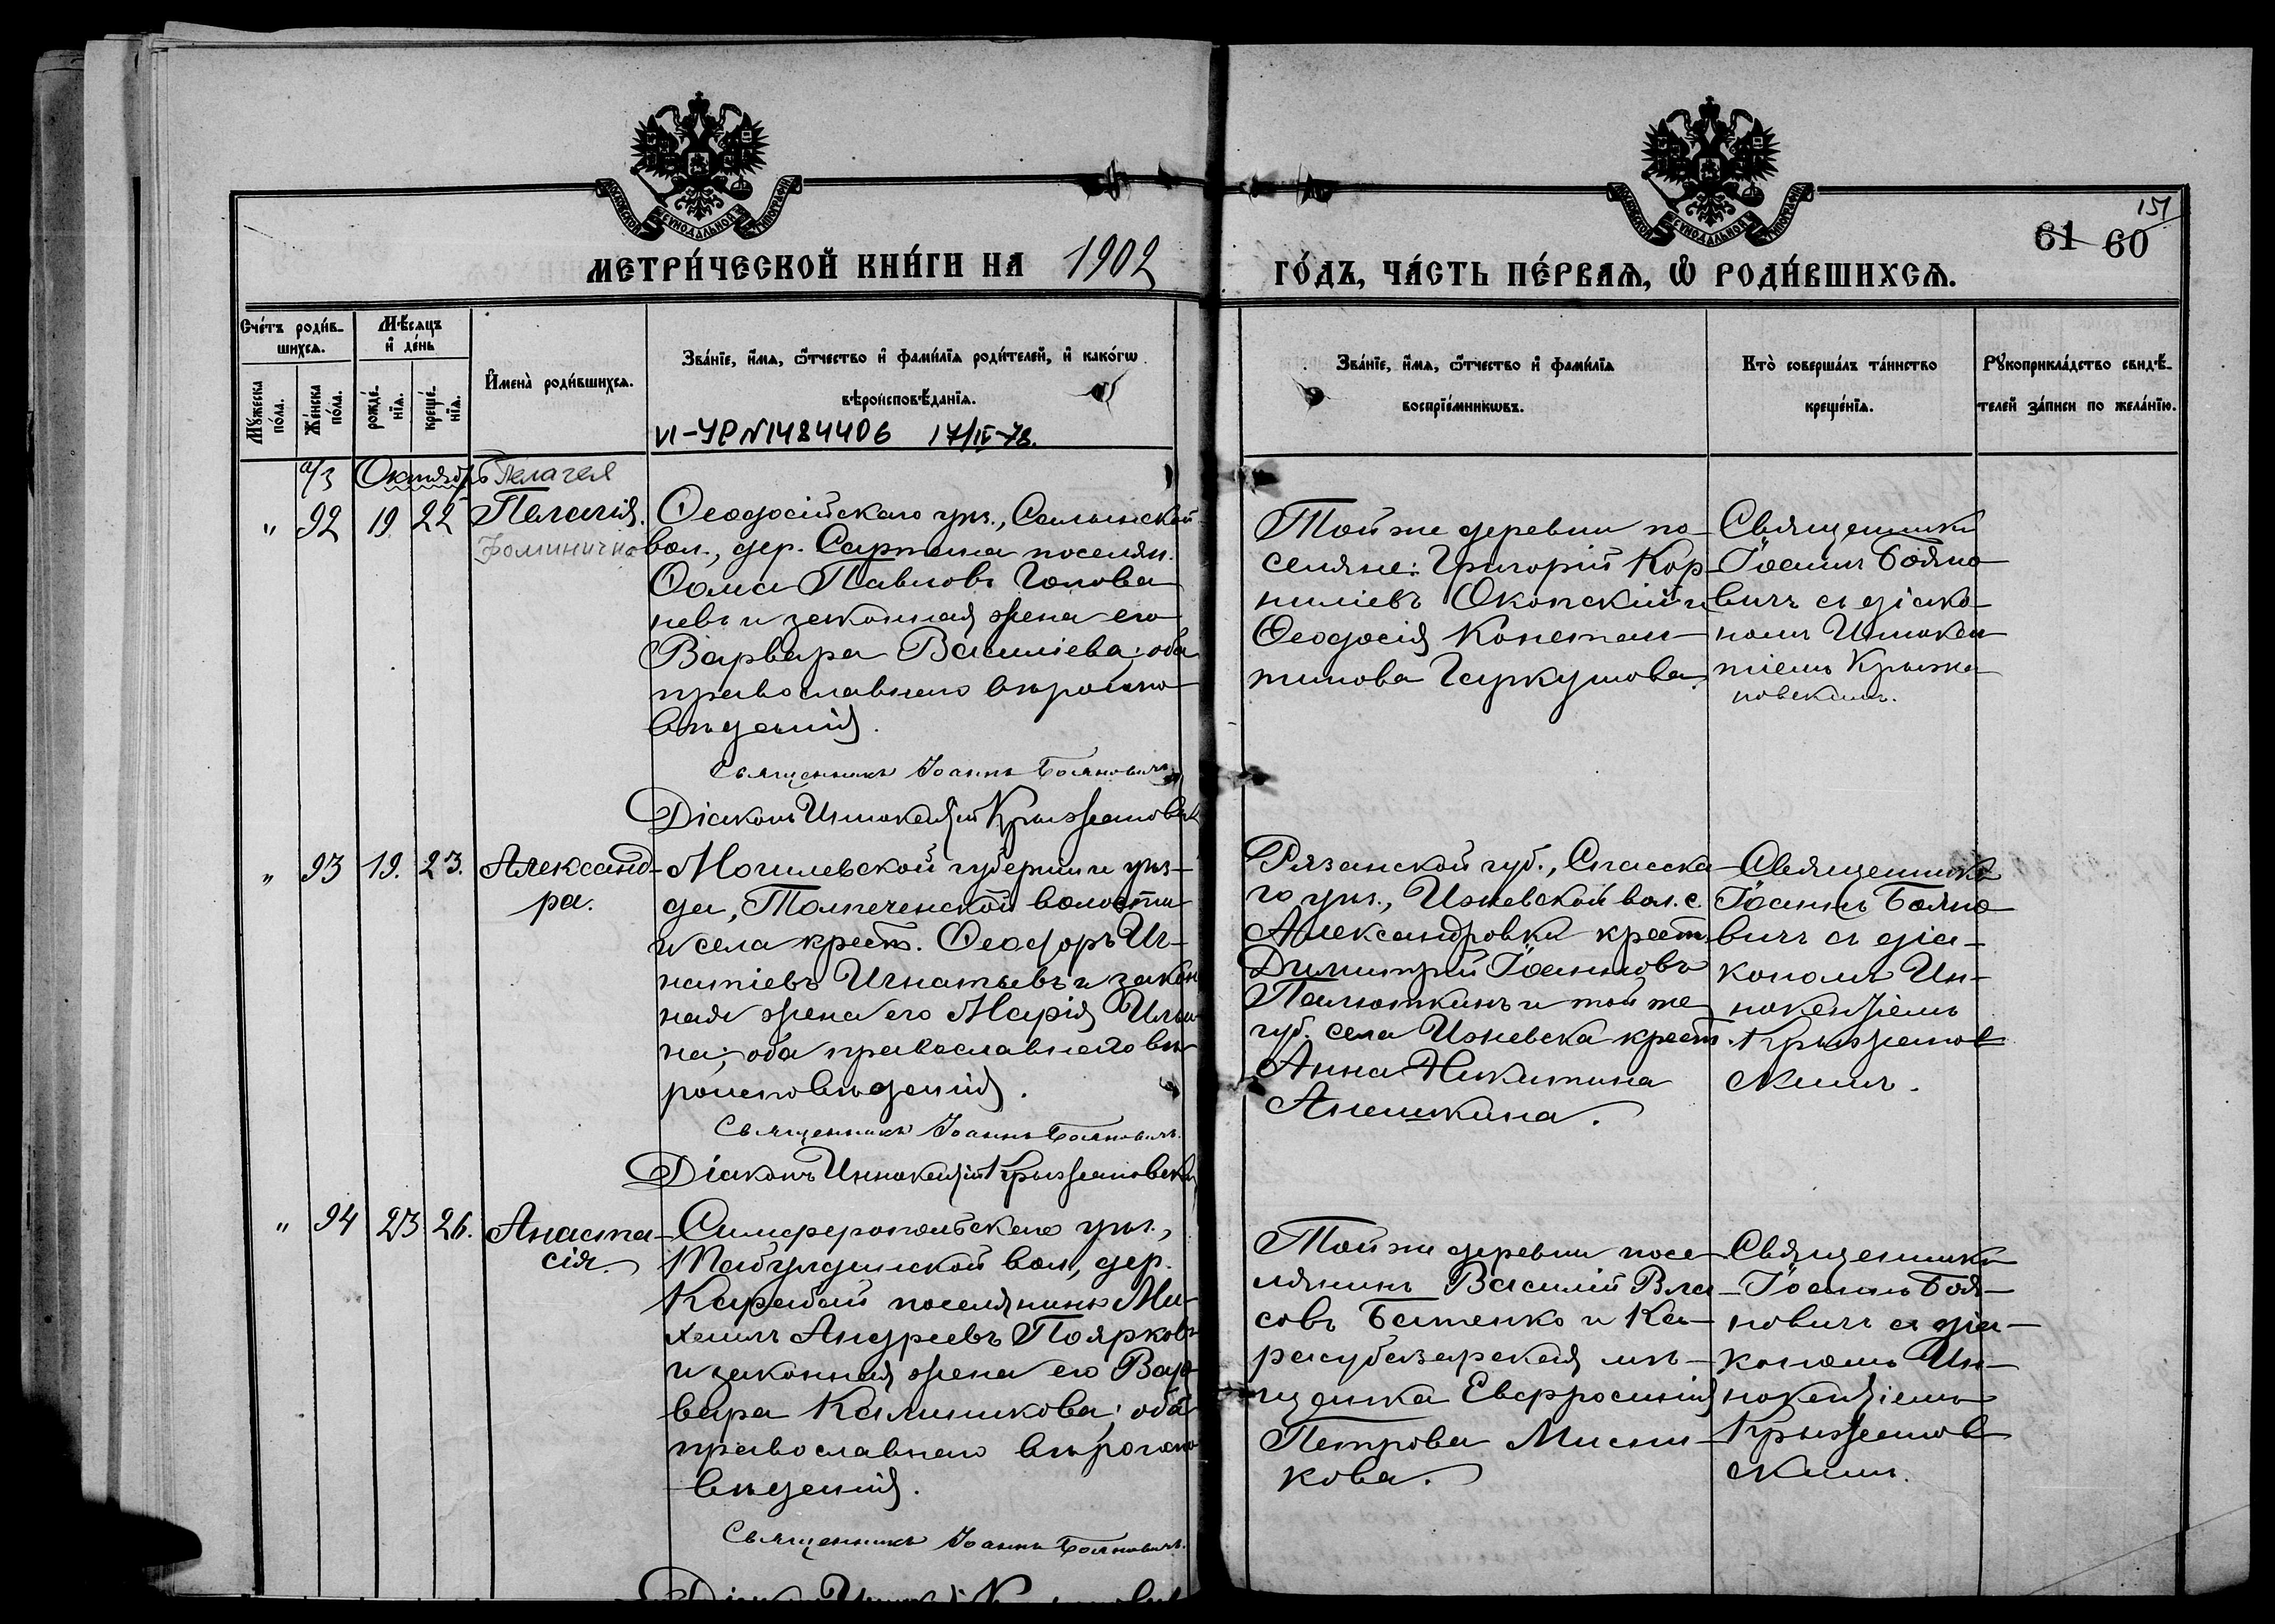 МЕТРИ́ЧЕСКОЙ КНИ́ГИ НА 1902
ГО́ДЪ, ЧА́СТЬ ПЕ́РВАѦ, Ѿ РОДИ́ВШИХСѦ.
151
61 60
Сче́тъ роди́в-
шихсѧ.
Мѣ́сѧцъ
и де́нь
Мꙋжеска
по́ла.
Же́нска
по́ла.
рожде́-
нїѧ.
креще́-
нїѧ.
Имена̀ роди́вшихсѧ.
Зва́нїе, и́мѧ, ѻ́тчество и фами́лїѧ роди́телей, и како́гѡ
вѣроисповѣ́данїѧ.
VI-УР N1484406 17/IV-78.
Зва́нїе, и́мѧ, ѻ́тчество и фами́лїѧ
воспрїе́мникѡвъ.
Кто̀ соверша́лъ та́инство
креще́нїѧ.
Рꙋкоприкла́дство свидѣ́-
телей за́писи по жела́нїю.
а/з Октябрь Пелагея
" 92 19 22 Пелагія.
Фоминична
Ѳеодосійскаго уѣз., Салынской
вол., дер. Сартана поселян.
Ѳома Павловъ Голова-
невъ и законная жена его
Варвара Васильева; оба
православнаго вѣроиспо-
вѣданія.
Священникъ Іоаннъ Бояновичъ
Діаконъ Иннокентій Крыжановскій
Той же деревни по-
селяне: Григорій Кор-
ниліевъ Оконскій и
Ѳеодосія Констан-
тинова Гаркушова.
Священникъ
Іоаннъ Бояно-
вичъ съ діако-
номъ Иннокен-
тіемъ Крыжа-
новскимъ.
" 93 19. 23. Александ-
ра.
Могилевской губерніи уѣз-
да, Толпеченской волости
и села крест. Ѳеодоръ Иг-
натіевъ Игнатьевъ и закон
ная жена его Марія Ильи-
на; оба православнаго вѣ-
роисповѣданія.
Священникъ Іоаннъ Бояновичъ.
Діаконъ Иннокентій Крыжановскій
Рязанской губ., Спасска-
го уѣз., Ижевской вол. с.
Александровки крест.
Димитрій Іоанновъ
Палюткинъ и той же
губ. села Ижевска крест.
Анна Никитина
Анешкина.
Священникъ
Іоаннъ Бояно-
вичъ съ діа-
кономъ Ин-
нокентіемъ
Крыжанов-
скимъ.
" 94 23 26. Анаста-
сія.
Симферопольскаго уѣз.,
Табулдинской вол., дер.
Карабай поселянинъ Ми-
хаилъ Андреевъ Поярковъ
и законная жена его Вар-
вара Калиникова; оба
православнаго вѣроиспо-
вѣданія.
Священникъ Іоаннъ Бояновичъ.
Той же деревни посе-
лянинъ Василій Вла-
совъ Батенко и Ка-
расубазарская мѣ-
щанка Евфросинія
Петрова Мисни-
кова.
Священникъ
Іоаннъ Боя-
новичъ съ діа-
кономъ Ин-
нокентіемъ
Крыжанов-
скимъ.